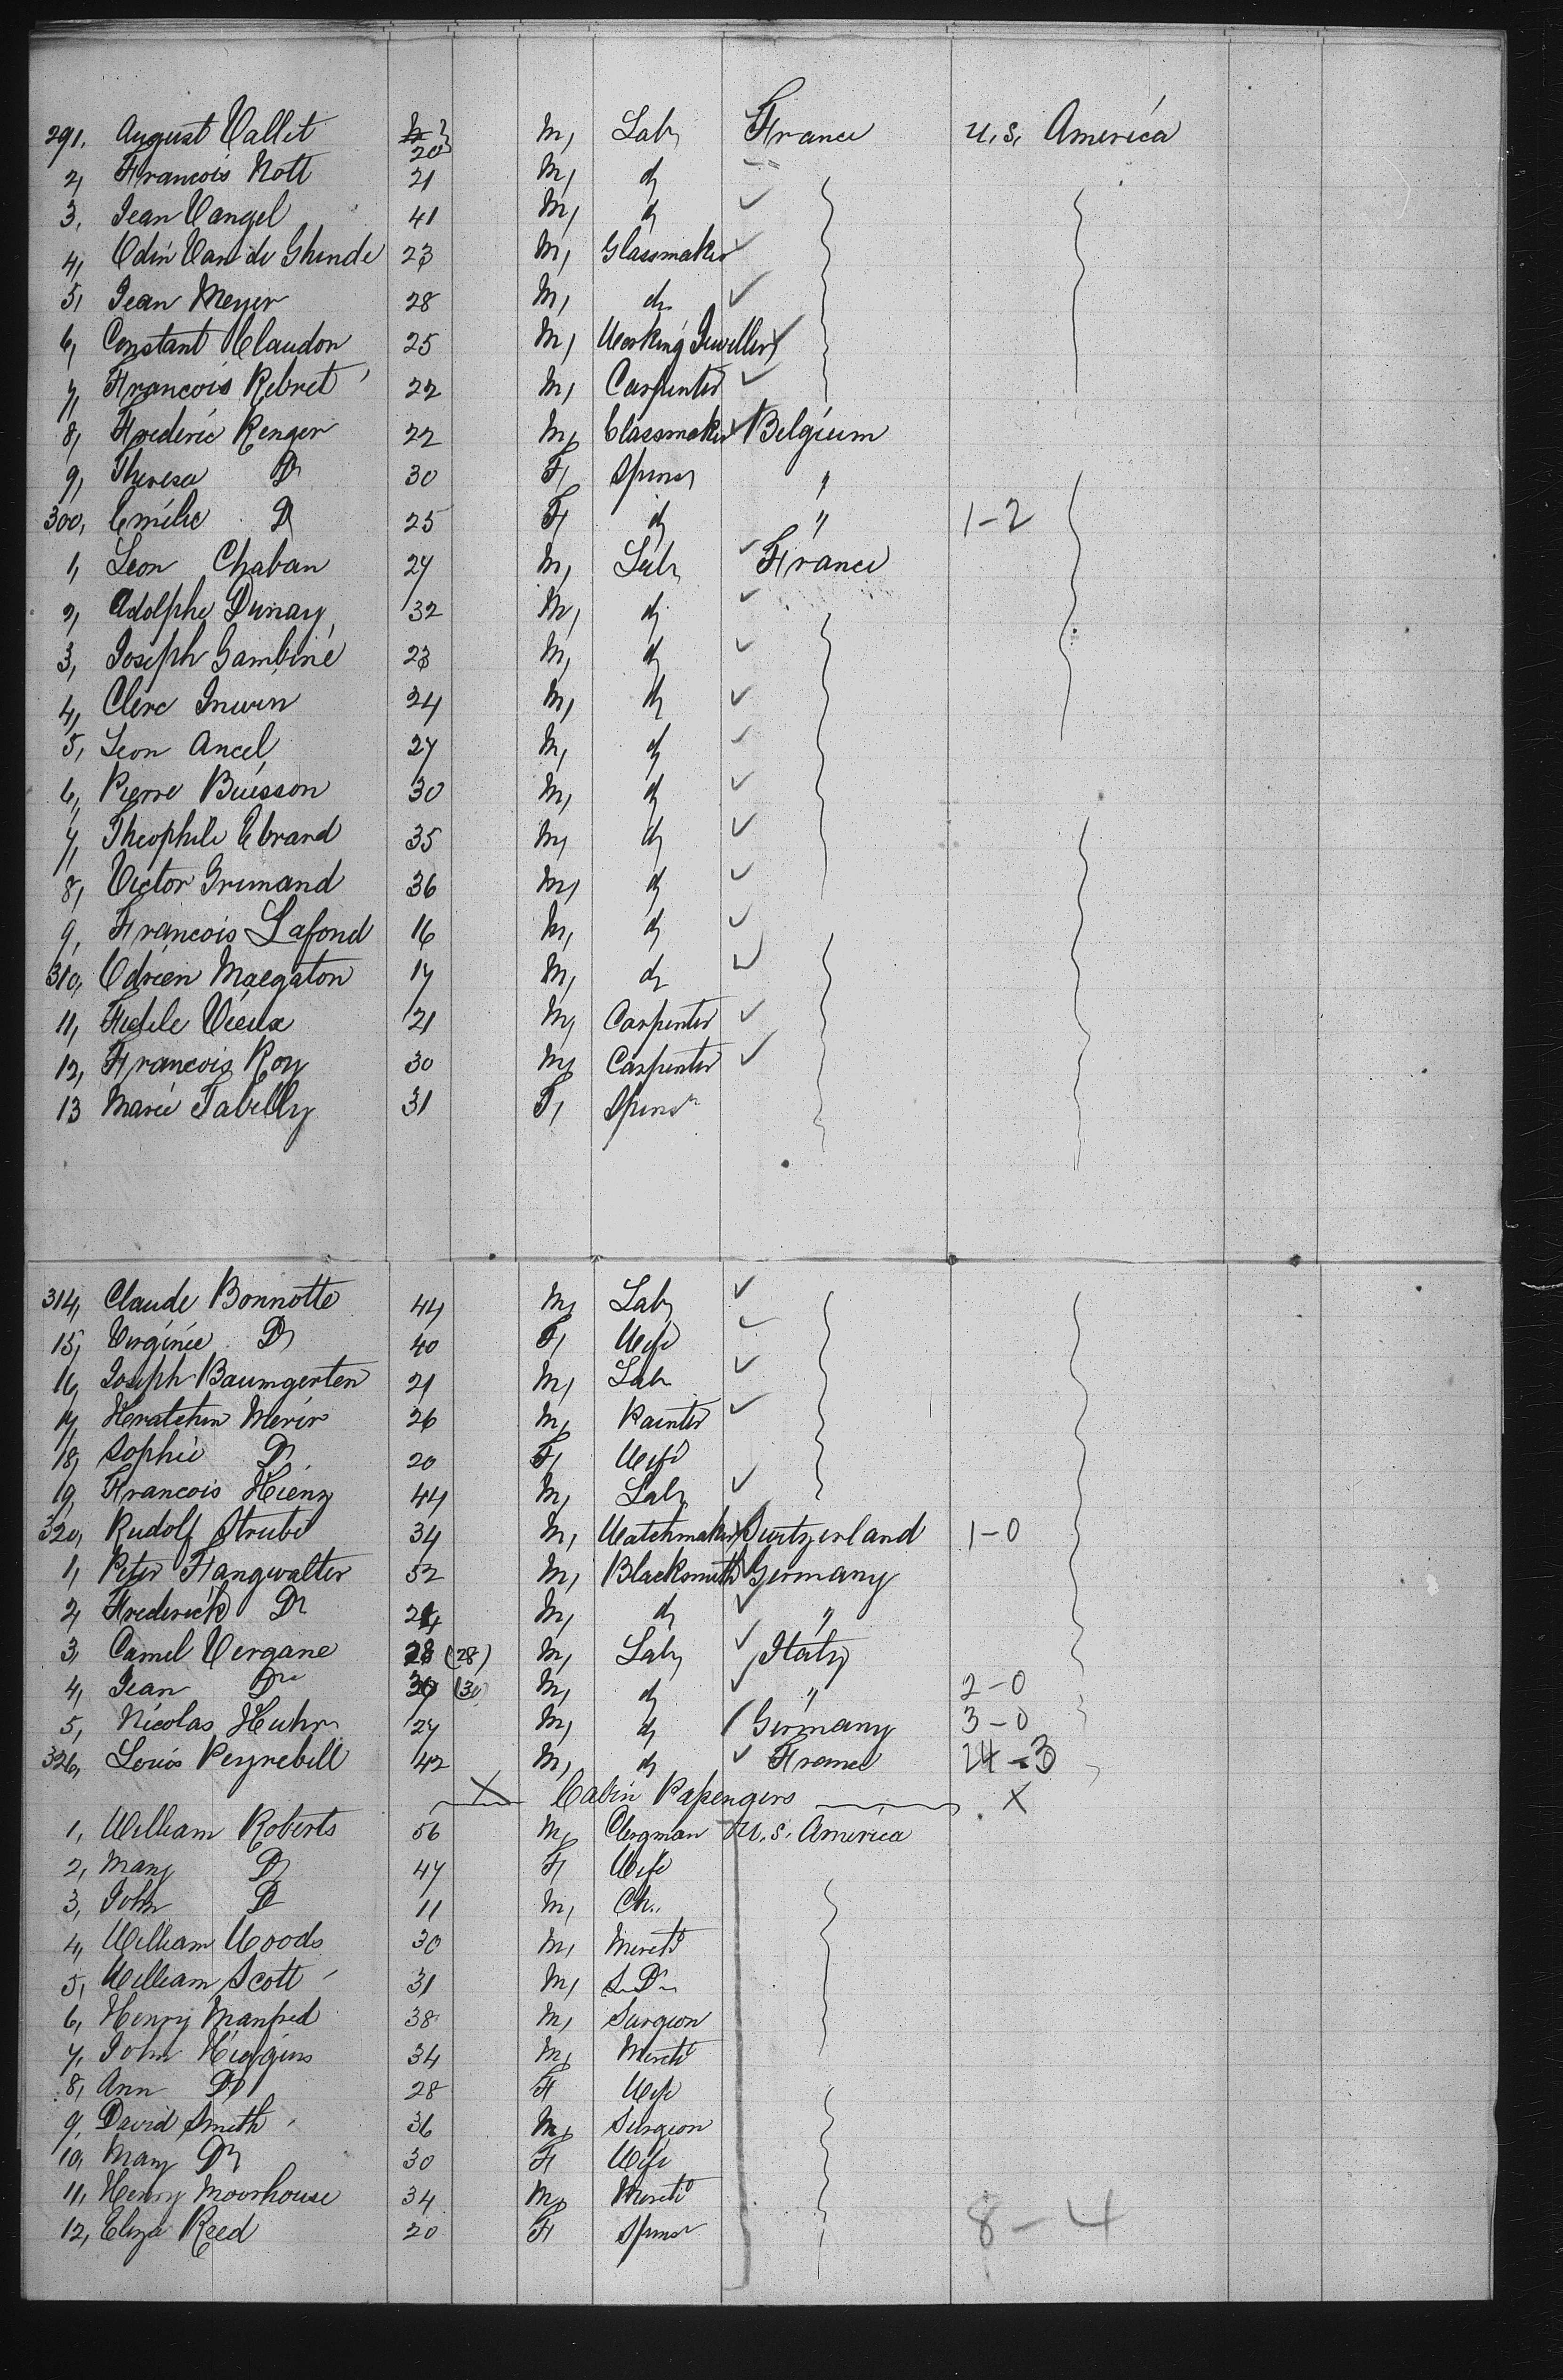 291, August Vallet 20 M, Labr France U.S. America
2, Francois Nott 21 M, do
3, Jean Vangel 41 M, do
4, Odin Van de Ghinde 23 M, Glassmaker
5, Jean Meyer 28 M, do
6, Constant Claudon 25 M, Working Jeweller
7, Francois Rebret 22 M, Carpenter
8, Frederic Renger 22 M, Glassmaker Belgium
9, Theresa Do 30 F, Spinsr "
300, Emilie Do 25 F, do " 1-2
1, Leon Chaban 27 M, Labr France
2, Adolphe Dunay 32 M, do
3, Joseph Gambine 23 M, do
4, Clerc 24 M, do
5, Leon Ancel 27 M, do
6, Pierre Buisson 30 M, do
7, Theophile Ebrand 35 M, do
8, Victor Grimand 36 M, do
9, Francois Lafond 16 M, do
310, Adrien Maegaton 17 M, do
11, Fidele Vieux 21 M, Carpenter
12, Francois Roy 30 M, Carpenter
13 Marie Tabelly 31 F, Spinsr
314, Claude Bonnotte 44 M, Labr
15, Virginie Do 40 F, Wife
16, Joseph Baumgerten 21 M, Labr
17, Merir 26 M, Painter
18, Sophie Do 20 F, Wife
19, Francois Hieng 44 M, Labr
320, Rudolf Strube 34 M, Watchmaker Switzerland 1-0
1, Peter Fangwalter 52 M, Blacksmith Germany
2, Frederick Do 24 M, do "
3, Camel Vergane 28 (28) M, Labr Italy
4, Jean Do 30 (30) M, do " 2-0
5, Nicolas Huhr 27 M, do Germany 3-0
326, Louis Peyrebill 42 M, do France 24-3
X Cabin Passengers X
1, William Roberts 56 M, Clergman U.S. America
2, Mary Do 47 F, Wife
3, John Do 11 M, Ch..
4, William Woods 30 M, Mercht
5, William Scott 31 M, Do
6, Henry Manfred 38 M, Surgeon
7, John Higgins 34 M, Mercht
8, Ann Do 28 F Wife
9, David Smith 36 M, Surgeon
10, Mary Do 30 F, Wife
11, Henry Moorhouse 34 M, Mercht
12, Eliza Reed 20 F, Spinsr 8-4